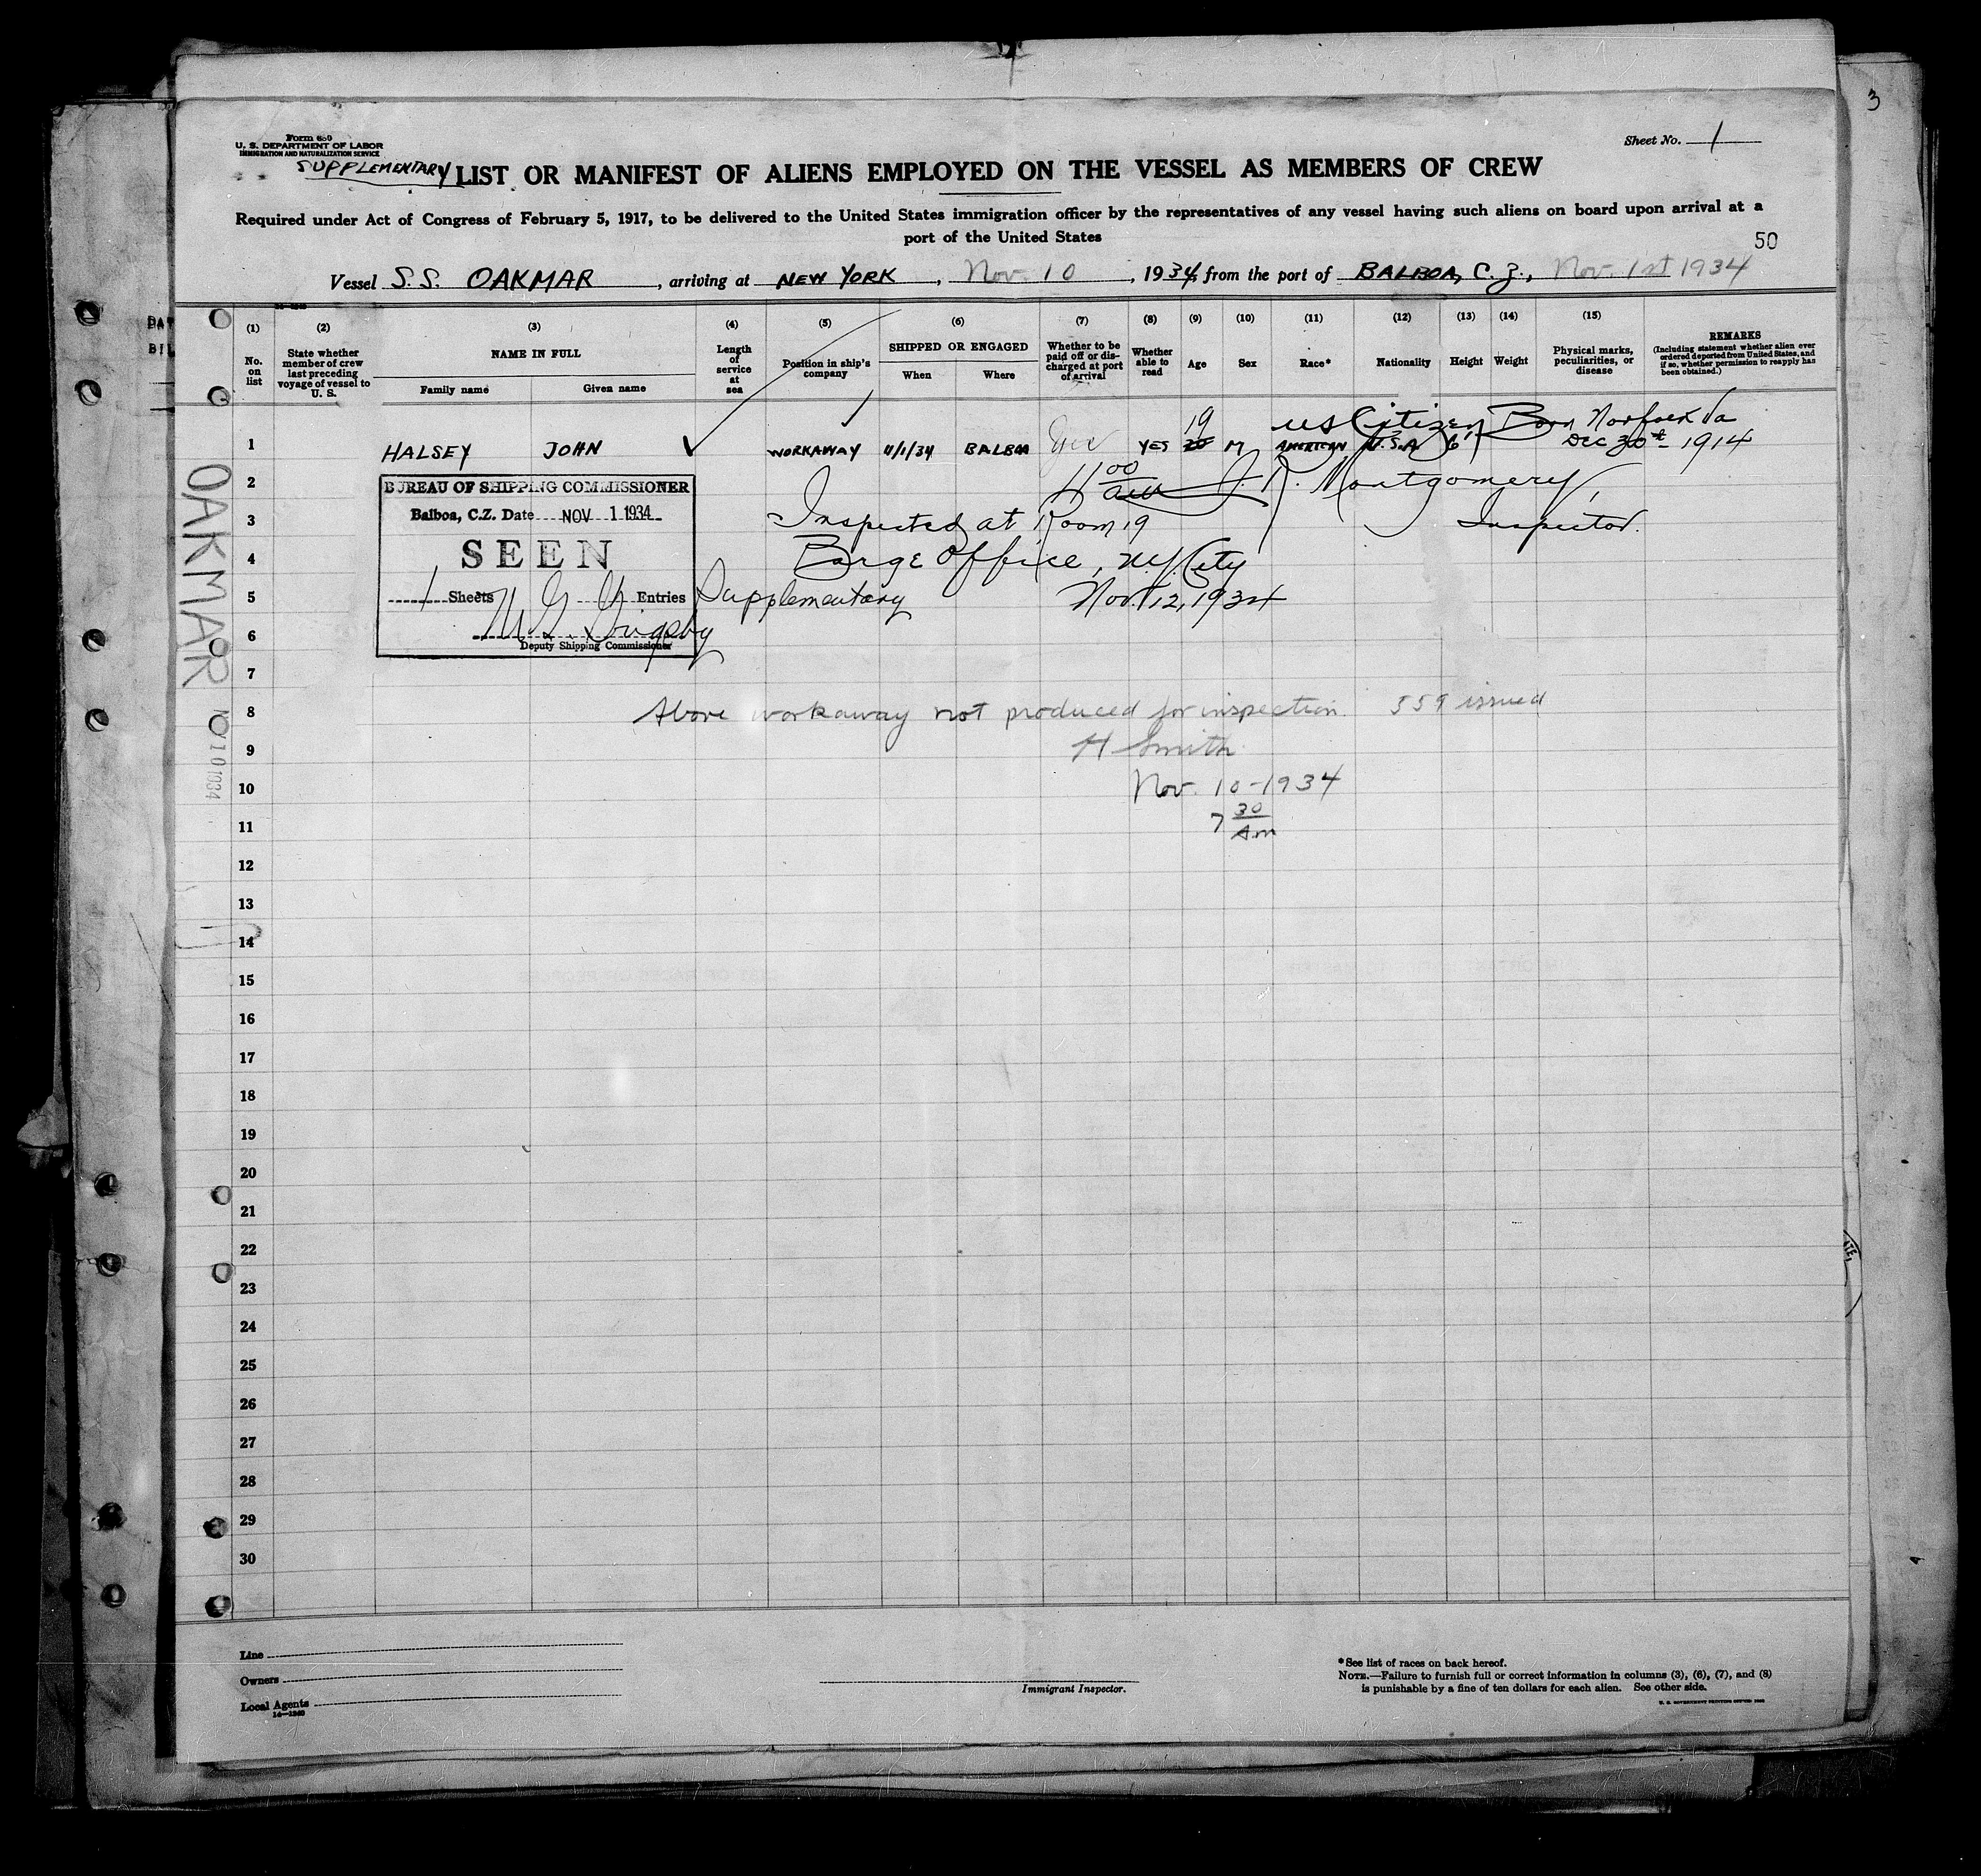 3
Form 680
U. S. DEPARTMENT OF LABOR
IMMIGRATION AND NATURALIZATION SERVICE
Sheet No. 1
SUPPLEMENTARY LIST OR MANIFEST OF ALIENS EMPLOYED ON THE VESSEL AS MEMBERS OF CREW
Required under Act of Congress of February 5, 1917, to be delivered to the United States immigration officer by the representatives of any vessel having such aliens on board upon arrival at a
port of the United States
50
Vessel S.S. OAKMAR, arriving at NEW YORK, Nov. 10, 1934, from the port of BALBOA, C. Z., Nov. 1st 1934
(1) (2) (3) (4) (5) (6) (7) (8) (9) (10) (11) (12) (13) (14) (15)
No. on list
State whether member of crew last preceding voyage of vessel to U. S.
NAME IN FULL
Family name
Given name
Length of service at sea
Position in ship's company
SHIPPED OR ENGAGED
When
Where
Whether to be paid off or discharged at port of arrival
Whether able to read
Age
Sex
Race*
Nationality
Height
Weight
Physical marks, peculiarities, or disease
REMARKS
(Including statement whether alien ever ordered deported from United States, and if so, whether permission to reapply has been obtained.)
19 US Citizen Born Norfolk Va
1 HALSEY JOHN WORKAWAY 11/1/34 BALBOA Yes YES 20 M AMERICAN U.S.A 6' Dec 30th 1914
2 11 00 am J. R. Montgomery,
BUREAU OF SHIPPING COMMISSIONER
Balboa, C.Z. Date NOV 1 1934
SEEN
1 Sheets Entries
Deputy Shipping Commissioner
3 Inspected at Room 19 Inspector.
4 Barge Office, N.Y. City
5 Supplementary Nov. 12, 1934
6
7
8 Above workaway not produced for inspection. 559 issued
9 H Smith
10 Nov. 10-1934
11 7 30 A.m
12
13
14
15
16
17
18
19
20
21
22
23
24
25
26
27
28
29
30
OAKMAR
NOV 10 1934
Line
Owners
Local Agents
14—1240
Immigrant Inspector.
*See list of races on back hereof.
NOTE.—Failure to furnish full or correct information in columns (3), (6), (7), and (8)
is punishable by a fine of ten dollars for each alien. See other side.